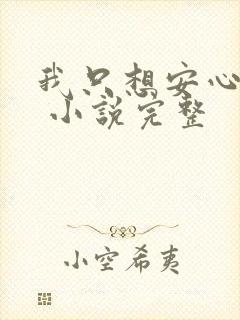 我只想安心
小說完整
小空希夷